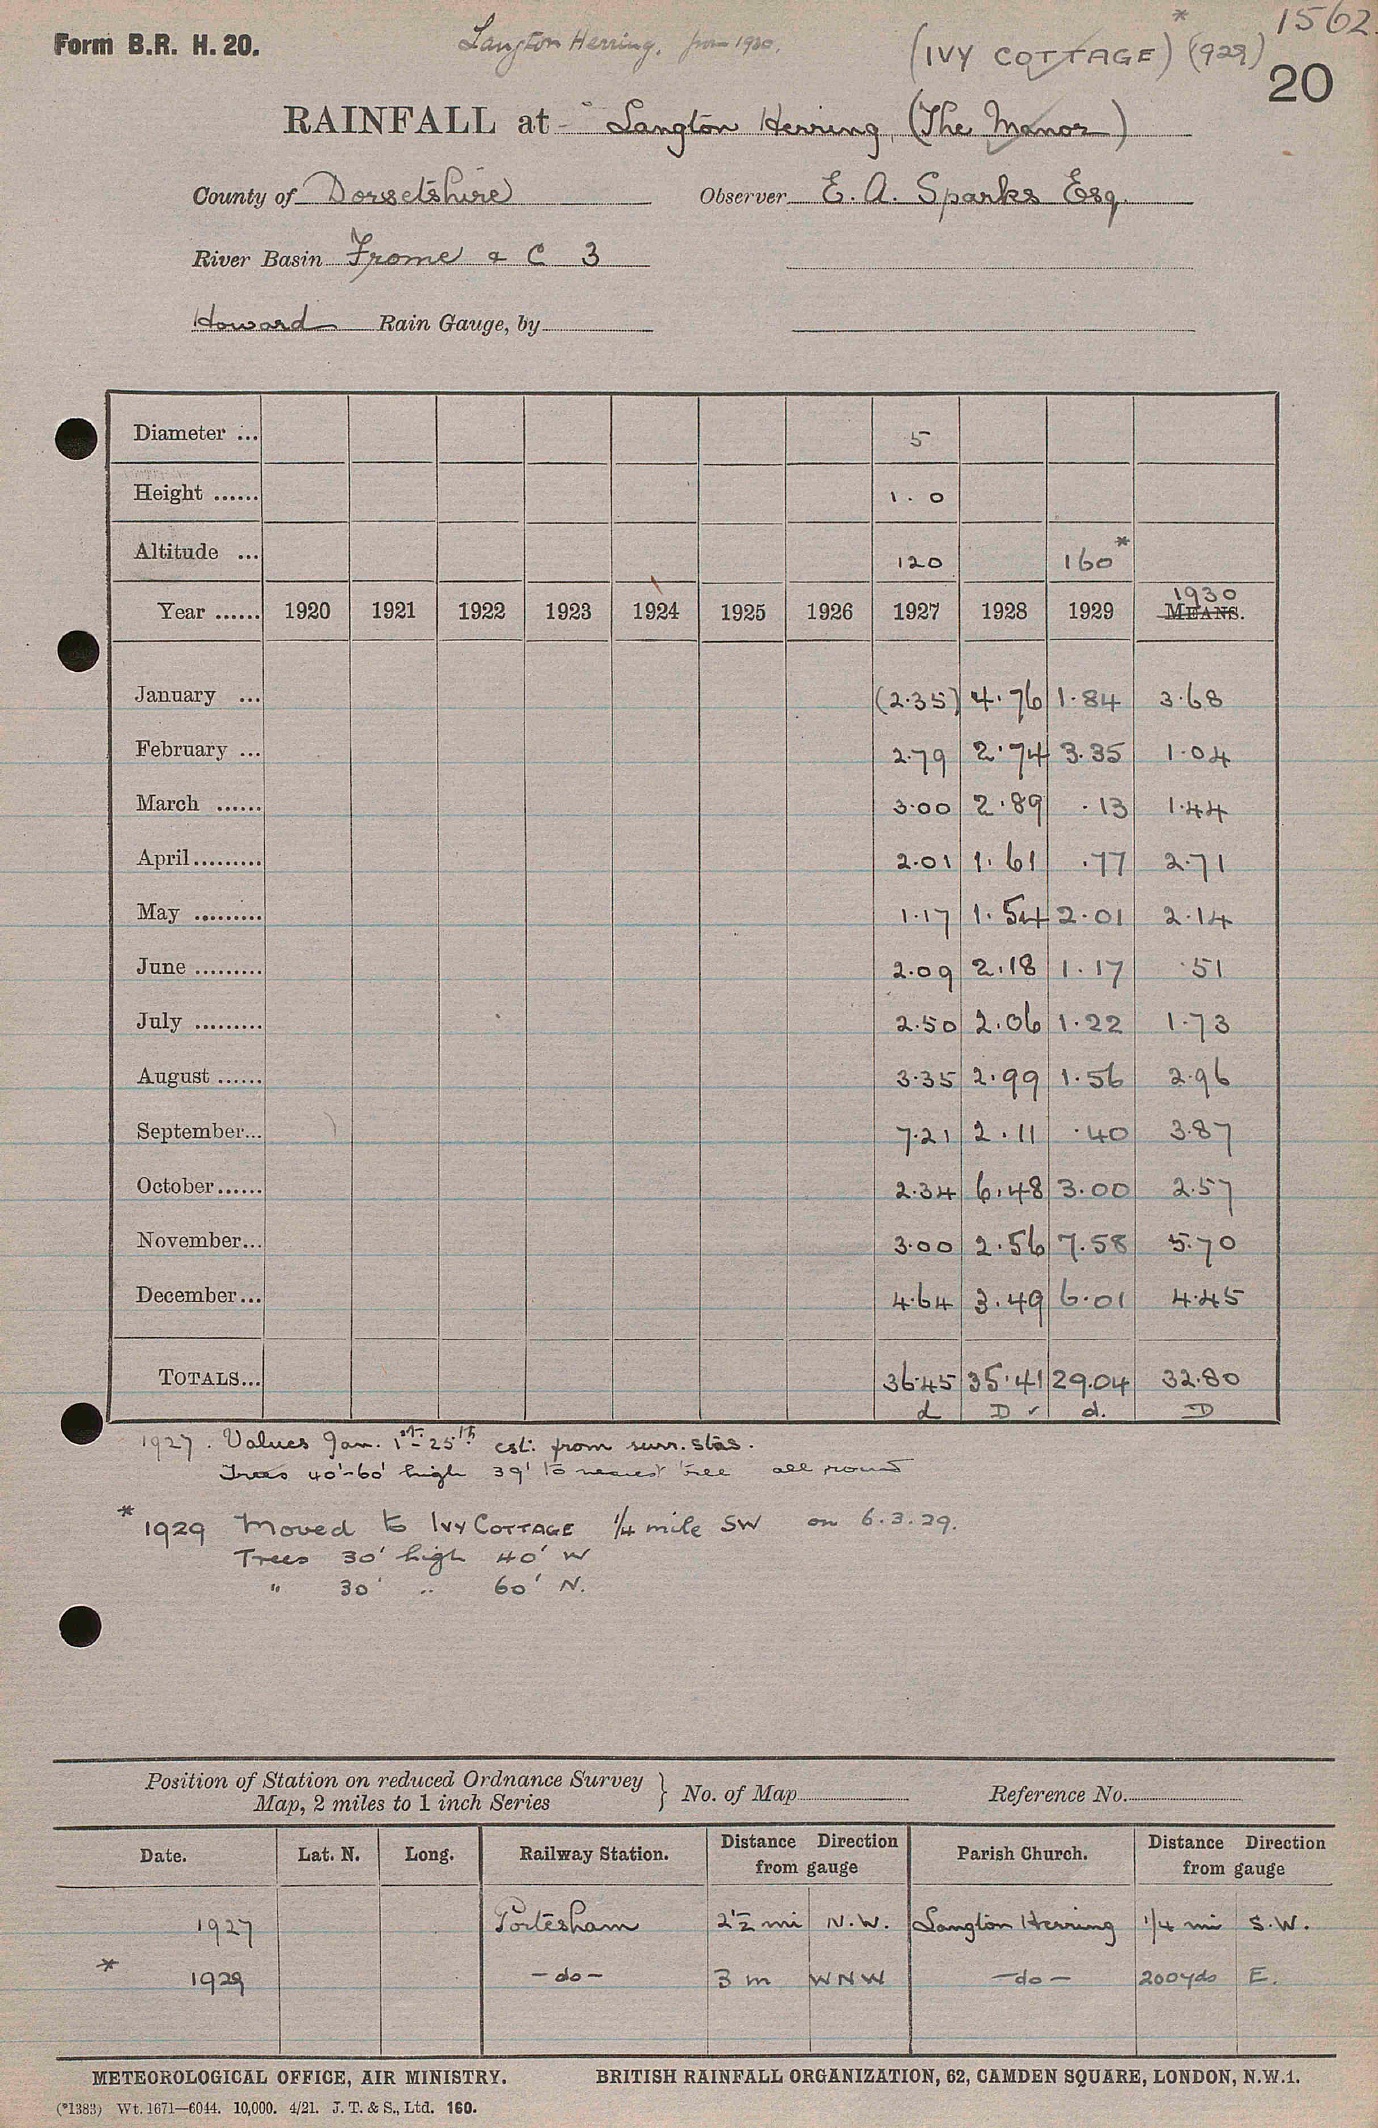 1562.
Form B.R. H. 20.
Langton Herring. from 1930.
* (IVY COTTAGE) (1929)
20
RAINFALL at Langton Herring, (The Manor)
County of Dorsetshire Observer E. A. Sparks Esq.
River Basin Frome & C 3
Howard Rain Gauge, by
Diameter ... 5
Height ...... 1. 0
Altitude ... 120 160*
1930
Year ...... 1920 1921 1922 1923 1924 1925 1926 1927 1928 1929 MEANS.
January ... (2.35) 4.76 1.84 3.68
February ... 2.79 2.74 3.35 1.04
March ...... 3.00 2.89 .13 1.44
April......... 2.01 1.61 .77 2.71
May ......... 1.17 1.54 2.01 2.14
June ......... 2.09 2.18 1.17 .51
July ......... 2.50 2.06 1.22 1.73
August ...... 3.35 2.99 1.56 2.96
September... 7.21 2.11 .40 3.87
October...... 2.34 6.48 3.00 2.57
November... 3.00 2.56 7.58 5.70
December... 4.64 3.49 6.01 4.45
TOTALS... 36.45 35.41 29.04 32.80
d D ✓ d. D
1927. Values Jan. 1st-25th est. from surr. stas.
Trees 40'-60' high 39' to nearest tree all round
* 1929 Moved to IVY COTTAGE 1/4 mile SW on 6.3.29.
Trees 30' high 40' W
" 30' " 60' N.
Position of Station on reduced Ordnance Survey
Map, 2 miles to 1 inch Series } No. of Map Reference No.
Date. Lat. N. Long. Railway Station. Distance Direction from gauge Parish Church. Distance Direction from gauge
1927 Portesham 2½ mi N.W. Langton Herring 1/4 mi S.W.
* 1929 -do- 3 m WNW -do- 200yds E.
METEOROLOGICAL OFFICE, AIR MINISTRY. BRITISH RAINFALL ORGANIZATION, 62, CAMDEN SQUARE, LONDON, N.W.1.
(*1383) Wt. 1671—6044. 10,000. 4/21. J. T. & S., Ltd. 160.